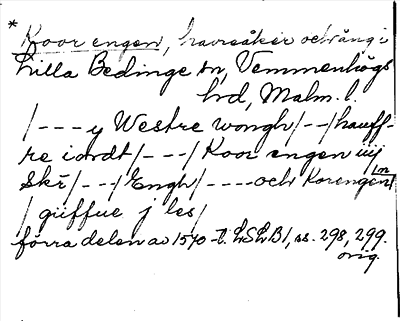 * Koor engen, havreåker och äng i
Lilla Bedinge sn, Vemmenhögs
hd, Malm. l.
/---y Westre wongh/--/hauff-
re iordt/---/Koor engen iiij
Skr/---/Engh/----och Korengen
/giiffue j les/
förra delen av 1570-t. LSLB1, ss. 298, 299.
orig.